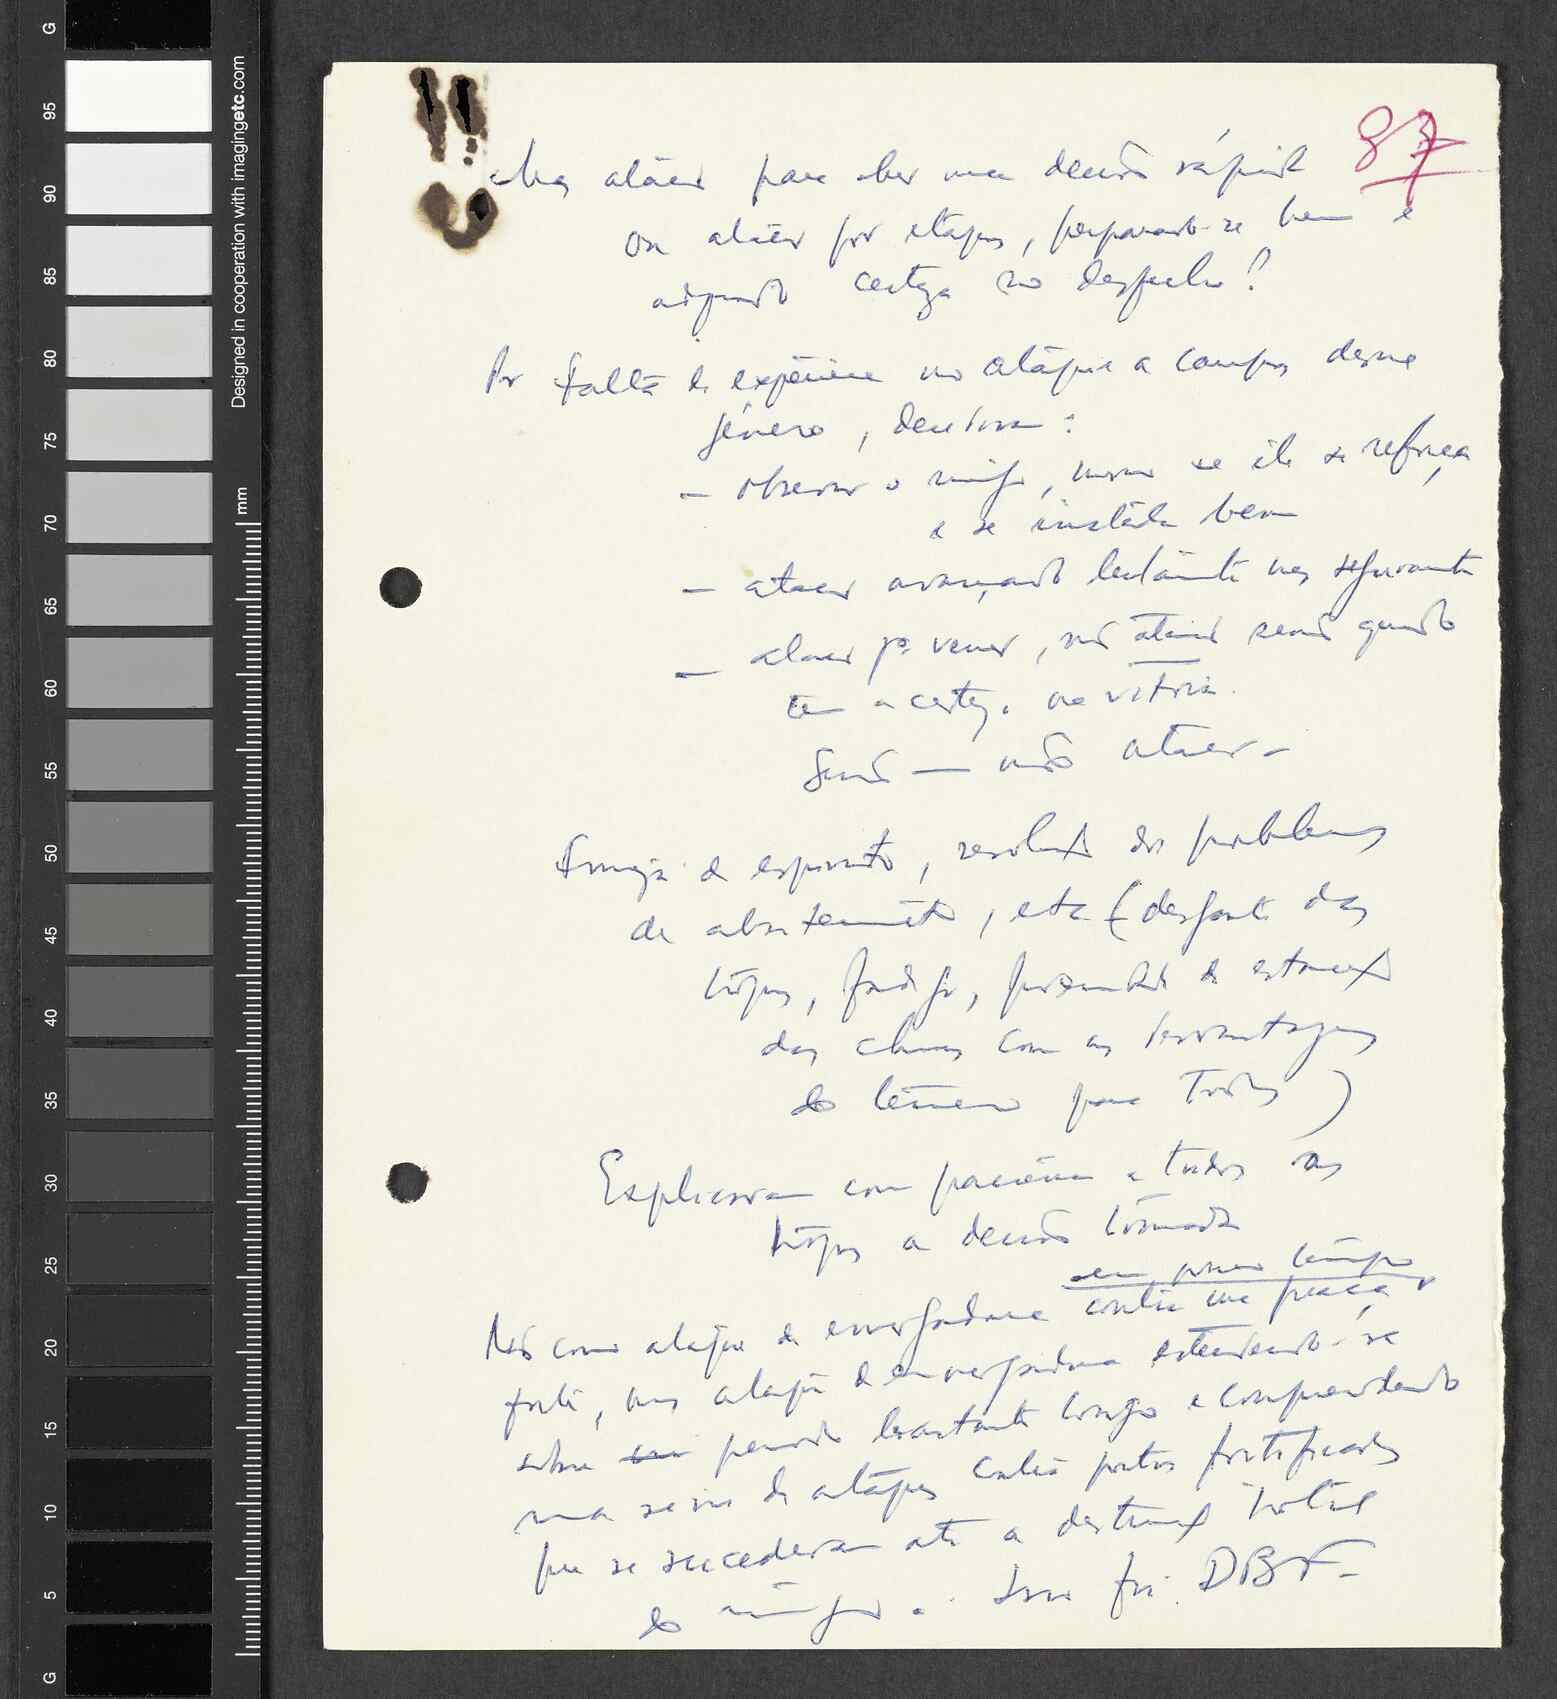 87
Mas atacar para obter uma decisão rápida
ou atacar por etapas, preparando-se bem e
adquirindo certeza no desfecho?
Por falta de experiência no ataque a campos desse
género, decidiram:
— observar o inimigo, mesmo se ele se reforça
e se instala bem
— atacar avançando lentamente mas seguramente
— atacar pª vencer, não atacar senão quando
tem a certeza na vitória.
Senão — não atacar -
Firmeza de espírito, resolução dos problemas
de abastecimento, etc (desgaste das
tropas, fadiga, proximidade da estação
das chuvas com as desvantagens
do terreno para todos)
Explicaram com paciência a todas as
tropas a decisão tomada
em pouco tempo
Não como ataque de envergadura contra uma praça
forte, mas ataque de envergadura estendendo-se
sobre um período bastante longo e compreendendo
uma série de ataques contra pontos fortificados
que se sucederam até a destruição total
do inimigo. Isso foi DBF -
G
95
90
85
80
75
70
65
60
55
50
45
40
35
30
25
20
15
10
5
G
mm
Designed in cooperation with imagingetc.com